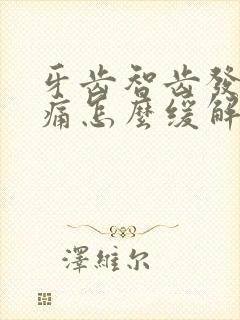 牙齿智齿發
痛怎麼缓解
澤維尔